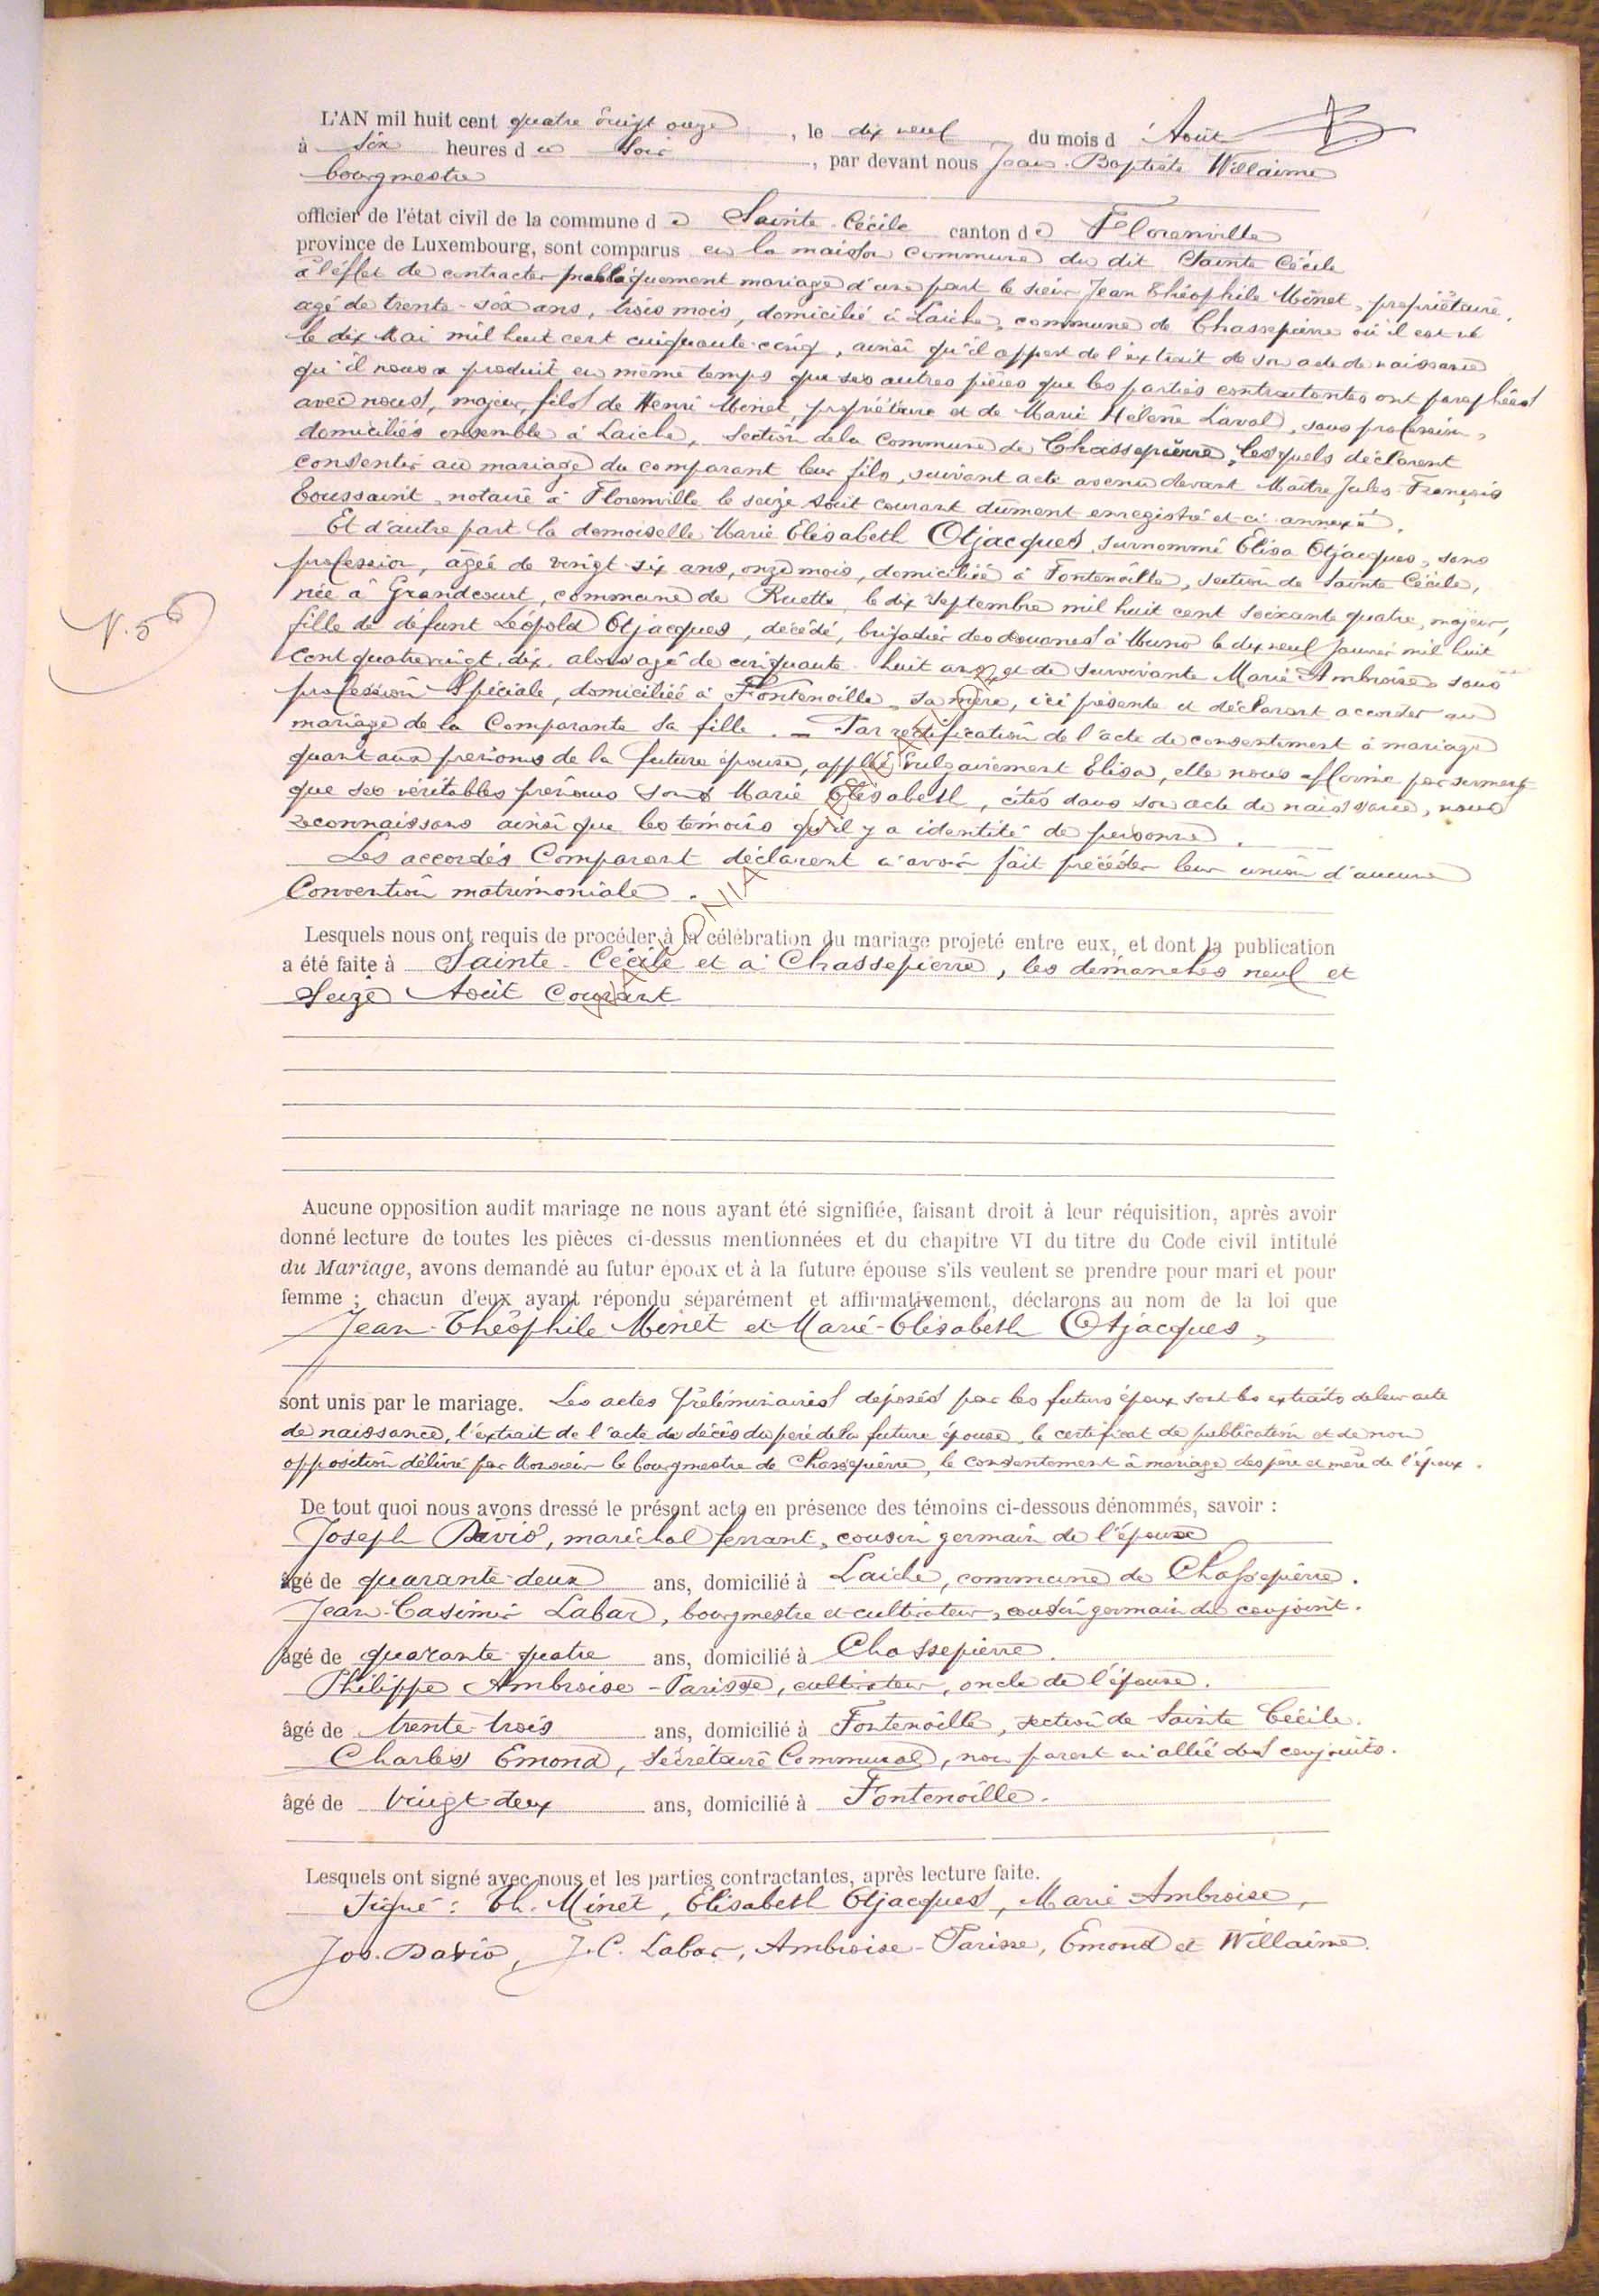 L'AN mil huit cent quatre vingt onze, le dix neuf du mois d'Août
à six heures du soir, par devant nous Jean-Baptiste Willaime
bourgmestre
officier de l'état civil de la commune de Sainte-Cécile canton de Florenville
province de Luxembourg, sont comparus en la maison commune du dit Sainte Cécile
à l'effet de contracter publiquement mariage d'une part le sieur Jean Théophile Minet, propriétaire,
agé de trente-six ans, trois mois, domicilié à Laiche, commune de Chassepierre où il est né
le dix Mai mil huit cent cinquante-cinq, ainsi qu'il appert de l'extrait de son acte de naissance
qu'il nous a produit en même temps que ses autres pièces que les parties contractantes ont paraphées
avec nous, majeur, fils de Henri Minet, propriétaire et de Marie Helène Laval, sans profession,
domiciliés ensemble à Laiche, section de la Commune de Chassepierre, lesquels déclarent
consentir au mariage du comparant leur fils, suivant acte avenu devant Maître Jules François
Toussaint, notaire à Florenville le seize Août courant dûment enregistré et ci-annexé.
Et d'autre part la demoiselle Marie Elisabeth Otjacques, surnommé Elisa Otjacques, sans
profession, âgée de vingt-six ans, onze mois, domiciliée à Fontenoille, section de Sainte Cécile,
née à Grandcourt, commune de Ruette, le dix Septembre mil huit cent soixante quatre, majeur,
N. 5
fille de défunt Léopold Otjacques, décédé, brigadier des douanes à Muno le dix neuf Janvier mil huit
cent quatre vingt dix alors agé de cinquante-huit ans, et de survivante Marie Ambroise sans
profession Spéciale, domiciliée à Fontenoille, sa mère, ici présente et déclarant accorder au
mariage de la Comparante sa fille. — Par rectification de l'acte de consentement à mariage
quant aux prénoms de la future épouse, appelé vulgairement Elisa, elle nous affirme par serment
que ses véritables prénoms sont Marie Elisabeth, cités dans son acte de naissance, nous
reconnaissons ainsi que les témoins qu'il y a identité de personne.
Les accordés Comparant déclarent n'avoir fait précéder leur union d'aucune
Convention matrimoniale.
Lesquels nous ont requis de procéder à la célébration du mariage projeté entre eux, et dont la publication
a été faite à Sainte-Cécile et à Chassepierre, les dimanches neuf et
Seize Août Courant
Aucune opposition audit mariage ne nous ayant été signifiée, faisant droit à leur réquisition, après avoir
donné lecture de toutes les pièces ci-dessus mentionnées et du chapitre VI du titre du Code civil intitulé
du Mariage, avons demandé au futur époux et à la future épouse s'ils veulent se prendre pour mari et pour
femme ; chacun d'eux ayant répondu séparément et affirmativement, déclarons au nom de la loi que
Jean-Théophile Minet et Marie-Elisabeth Otjacques,
sont unis par le mariage. Les actes Préliminaires déposés par les futurs époux sont les extraits de leur acte
de naissance, l'extrait de l'acte de décès du père de la future épouse, le certificat de publication et de non
opposition délivré par Monsieur le bourgmestre de Chassepierre, le consentement à mariage des père et mère de l'époux.
De tout quoi nous avons dressé le présent acte en présence des témoins ci-dessous dénommés, savoir :
Joseph David, maréchal ferrant, cousin germain de l'épouse
âgé de quarante-deux ans, domicilié à Laiche, commune de Chassepierre.
Jean-Casimir Labar, bourgmestre et cultivateur, cousin germain du conjoint.
âgé de quarante-quatre ans, domicilié à Chassepierre.
Philippe Ambroise-Parisse, cultivateur, oncle de l'épouse.
âgé de trente-trois ans, domicilié à Fontenoille, section de Sainte Cécile.
Charles Emond, Sécrétaire Communal, non parent ni allié des conjoints.
âgé de Vingt-deux ans, domicilié à Fontenoille.
Lesquels ont signé avec nous et les parties contractantes, après lecture faite.
Signé : Th. Minet, Elisabeth Otjacques, Marie Ambroise,
Jos. David, J. C. Labar, Ambroise-Parisse, Emond et Willaime.